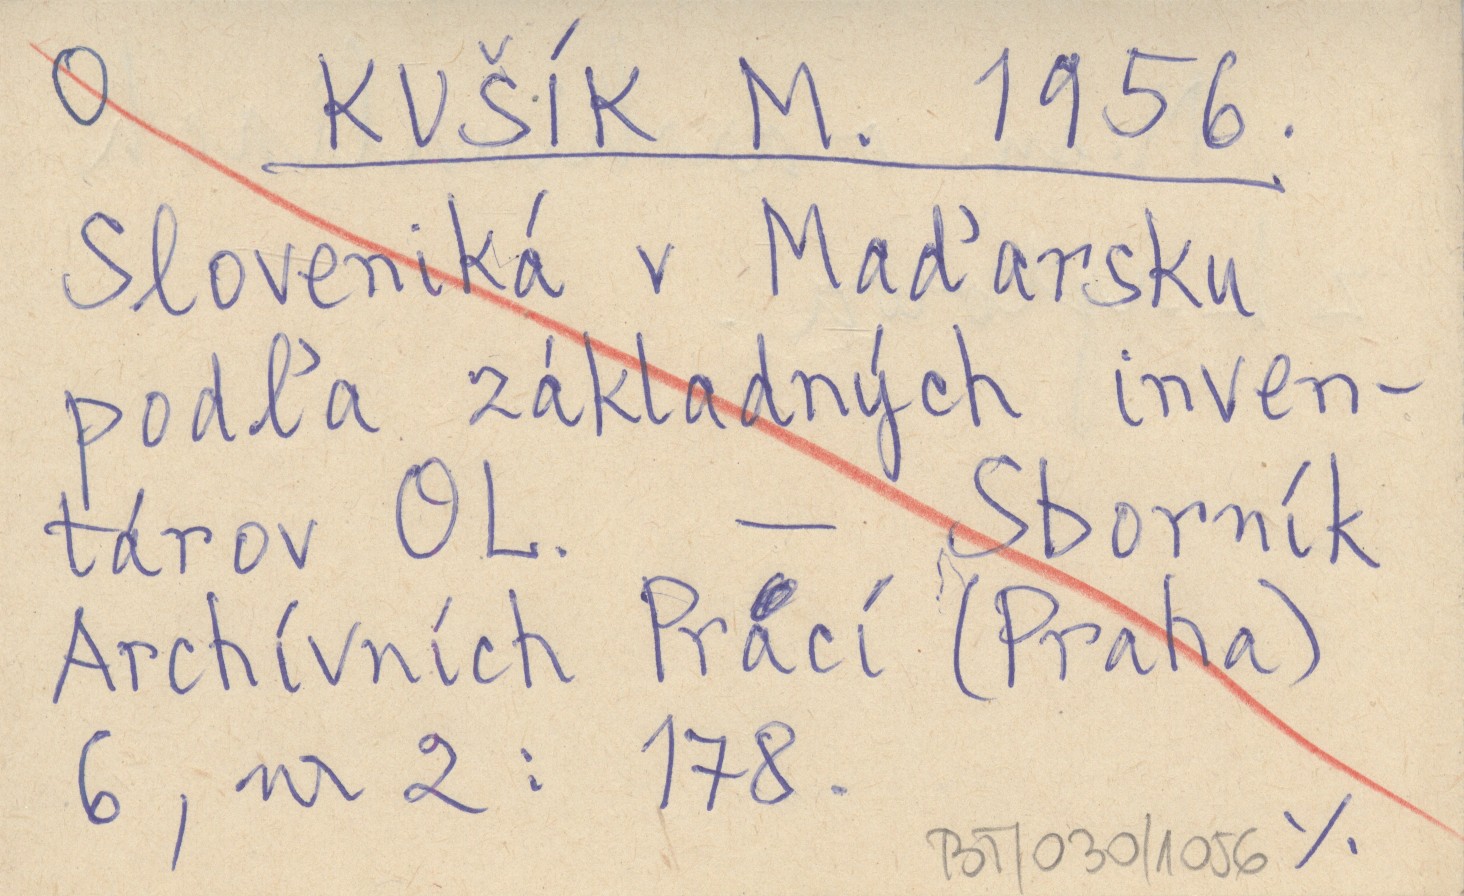 O KUŠÍK M. 1956.
Sloveniká v Maďarsku
podľa základných inven-
tárov OL. — Sborník
Archívních Prácí (Praha)
6, nr 2: 178.
BT/030/1056 ·/.